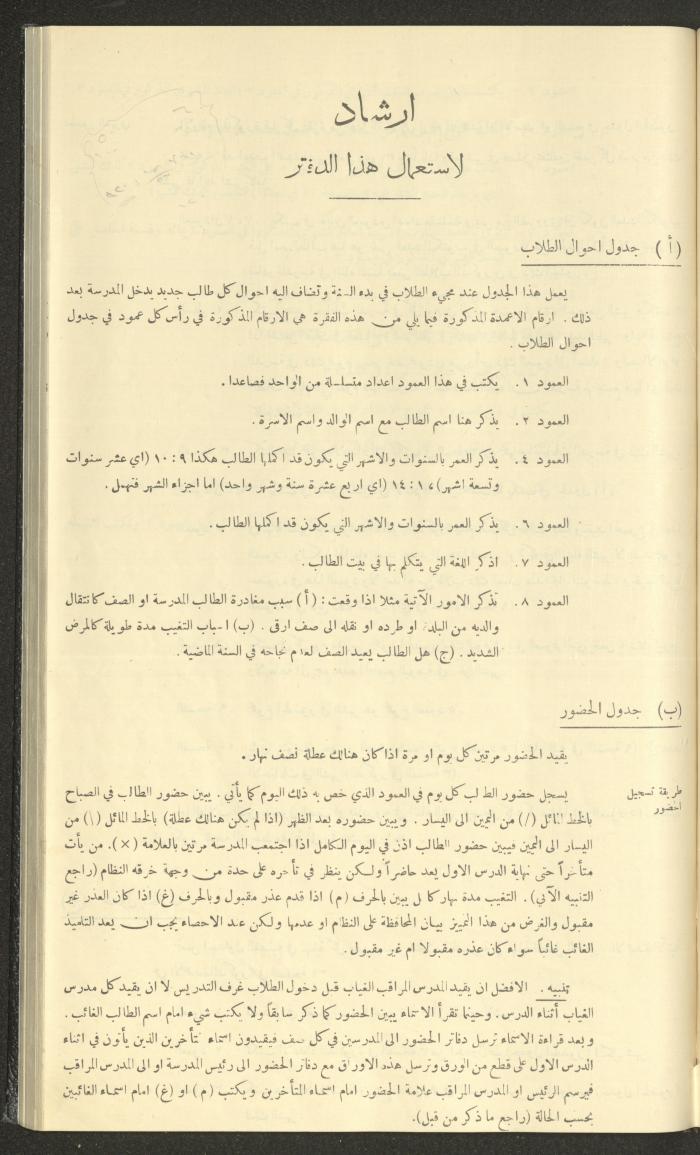 ارشاد
لاستعمال هذا الدفتر
(أ) جدول احوال الطلاب
يعمل هذا الجدول عند مجيء الطلاب في بدء السنة وتضاف اليه احوال كل طالب جديد يدخل المدرسة بعد
ذلك . ارقام الاعمدة المذكورة فيما يلي من هذه الفقرة هي الارقام المذكورة في رأس كل عمود في جدول
احوال الطلاب .
العمود ١. يكتب في هذا العمود اعداد متسلسلة من الواحد فصاعدا .
العمود ٢. يذكر هنا اسم الطالب مع اسم الوالد واسم الاسرة .
العمود ٤. يذكر العمر بالسنوات والاشهر التي يكون قد اكملها الطالب هكذا ٩ : ١٠ (اي عشر سنوات
وتسعة اشهر)، ١ : ١٤ (اي اربع عشرة سنة وشهر واحد) اما اجزاء الشهر فتهمل .
العمود ٦. يذكر العمر بالسنوات والاشهر التي يكون قد اكملها الطالب .
العمود ٧. اذكر اللغة التي يتكلم بها في بيت الطالب .
العمود ٨. تذكر الامور الآتية مثلا اذا وقعت : (أ) سبب مغادرة الطالب المدرسة او الصف كانتقال
والديه من البلد او طرده او نقله الى صف ارقى . (ب) اسباب التغيب مدة طويلة كالمرض
الشديد . (ج) هل الطالب يعيد الصف لعدم نجاحه في السنة الماضية .
(ب) جدول الحضور
يقيد الحضور مرتين كل يوم او مرة اذا كان هنالك عطلة نصف نهار .
طريقة تسجيل
الحضور
يسجل حضور الطالب كل يوم في العمود الذي خص به ذلك اليوم كما يأتي . يبين حضور الطالب في الصباح
بالخط المائل (/) من اليمين الى اليسار . ويبين حضوره بعد الظهر (اذا لم يكن هنالك عطلة) بالخط المائل (\) من
اليسار الى اليمين فيبين حضور الطالب اذن في اليوم الكامل اذا اجتمعت المدرسة مرتين بالعلامة (×). من يأت
متأخراً حتى نهاية الدرس الاول يعد حاضراً ولكن ينظر في تأخره على حدة من وجهة خرقه النظام (راجع
التنبيه الآتي) . التغيب مدة نهار كامل يبين بالحرف (م) اذا قدم عذر مقبول وبالحرف (غ) اذا كان العذر غير
مقبول والغرض من هذا التمييز بيان المحافظة على النظام او عدمها ولكن عند الاحصاء يجب ان يعد التلميذ
الغائب غائباً سواء كان عذره مقبولا ام غير مقبول .
تنبيه . الافضل ان يقيد المدرس المراقب الغياب قبل دخول الطلاب غرف التدريس لا ان يقيد كل مدرس
الغياب أثناء الدرس . وحينما تقرأ الاسماء يبين الحضور كما ذكر سابقاً ولا يكتب شيء امام اسم الطالب الغائب .
وبعد قراءة الاسماء ترسل دفاتر الحضور الى المدرسين في كل صف فيقيدون اسماء المتأخرين الذين يأتون في اثناء
الدرس الاول على قطع من الورق وترسل هذه الاوراق مع دفاتر الحضور الى رئيس المدرسة او الى المدرس المراقب
فيرسم الرئيس او المدرس المراقب علامة الحضور امام اسماء المتأخرين ويكتب (م) او (غ) امام اسماء الغائبين
بحسب الحالة (راجع ما ذكر من قبل).